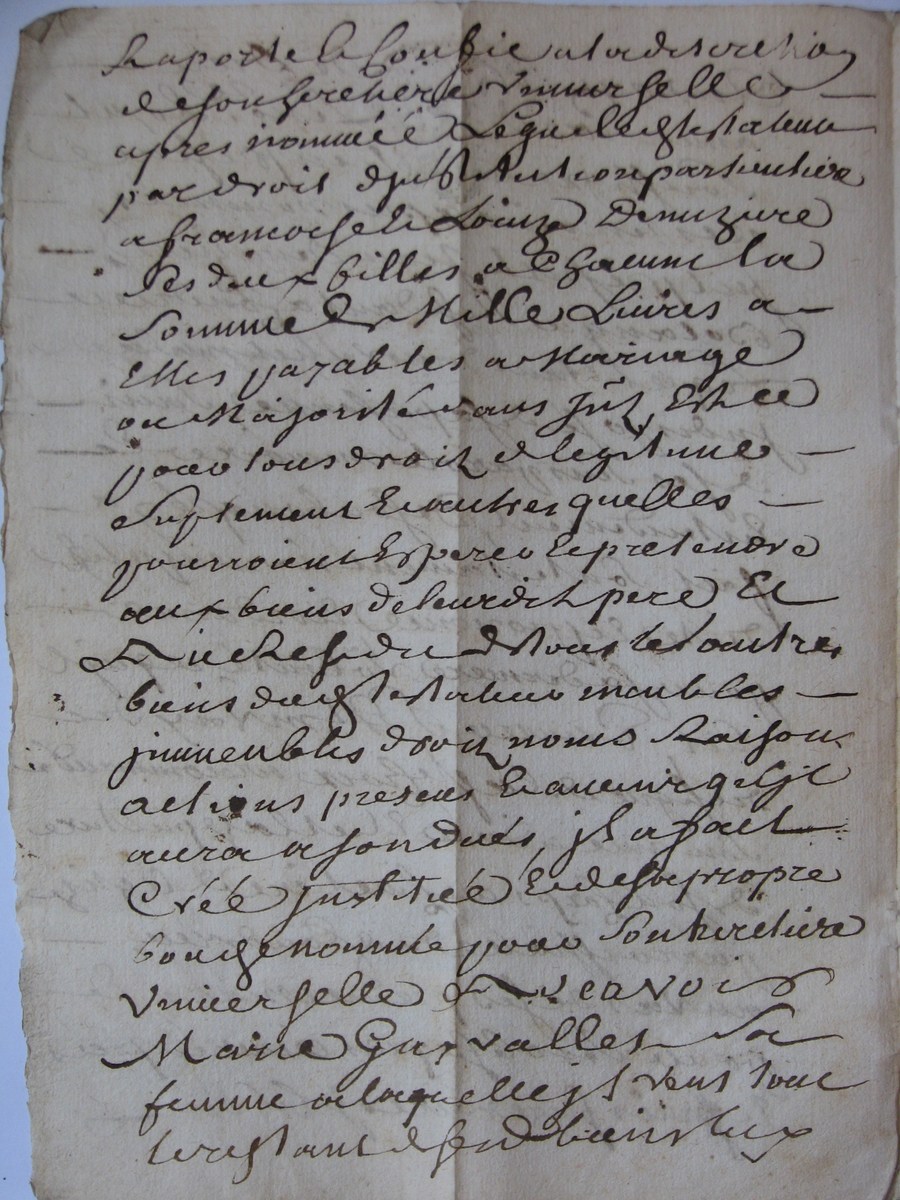 Raporte & Confie a la discretion
de son heretiere universelle
apres nommée Legue ledt testateur
par droit d'institution particuliere
a francoise & Louize Denuziere
ses deux filles a Chacune la
somme de Mille Livres a
Elles payables a Mariage
ou Majorité sans Jnt, Est ce
pour tous droitz de legitime
suplement & autres quelles
pourroient Esperer & pretendre
aux biens de leurdit pere Et
Au Residu de tous les autres
biens dudt testateur meubles
jmmeubles droitz noms Raisons
actions presens & avenir qu'il
aura a son deces, jl a fait
Créé Jnstitüé & de sa propre
bouche nommé pour son heretiere
universelle Ascavoir
Marie valles sa
femme a laquelle jl veut tout
le restant de sesd biens